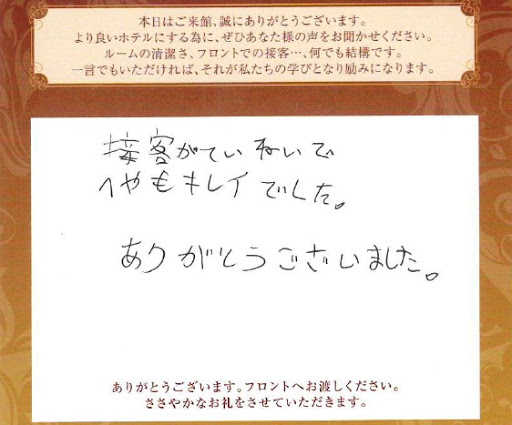 本日はご来館、誠にありがとうございます。
より良いホテルにする為に、ぜひあなた様の声をお聞かせください。
ルームの清潔さ、フロントでの接客…、何でも結構です。
一言でもいただければ、それが私たちの学びとなり励みになります。
接客がていねいで
へやもキレイでした。
ありがとうございました。
ありがとうございます。フロントへお渡しください。
ささやかなお礼をさせていただきます。